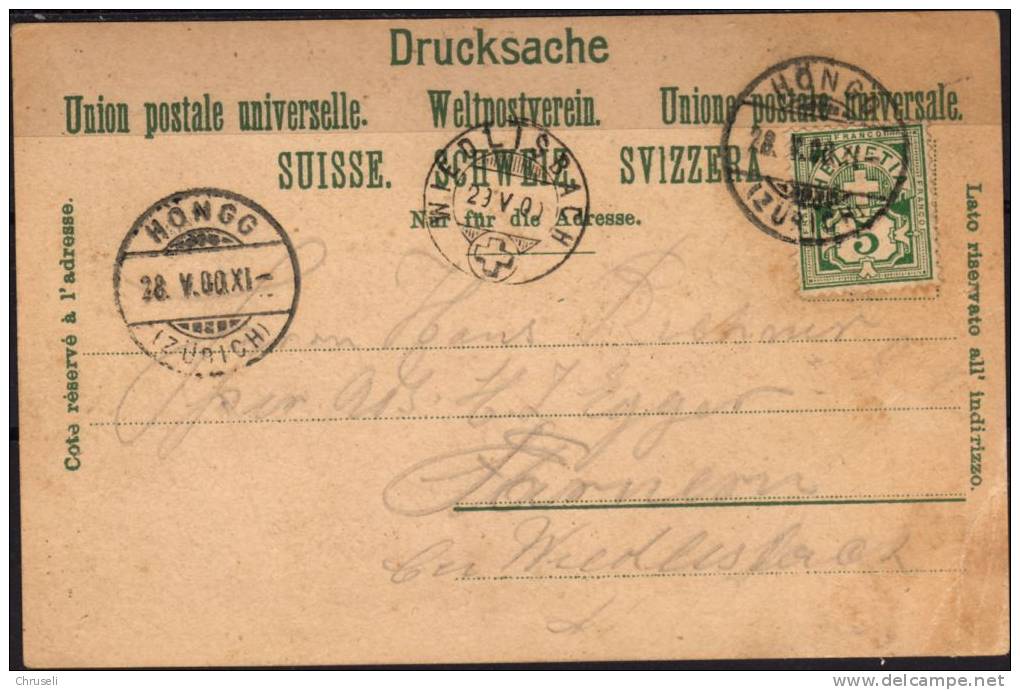 Drucksache
Union postale universelle. Weltpostverein. Unione postale universale.
SUISSE. SCHWEIZ. SVIZZERA.
Nur für die Adresse.
Côté réservé à l'adresse.
Lato riservato all' indirizzo.
HÖNGG
28. V.00.XI-
(ZÜRICH)
WIEDLISBACH
29 V 0
HÖNGG
28. V.00.XI
(ZÜRICH)
FRANCO
HELVETIA
FRANCO
5
Herrn Hans
per Egger
Farnern
bei Wiedlisbach
Chruseli
delcampe.net